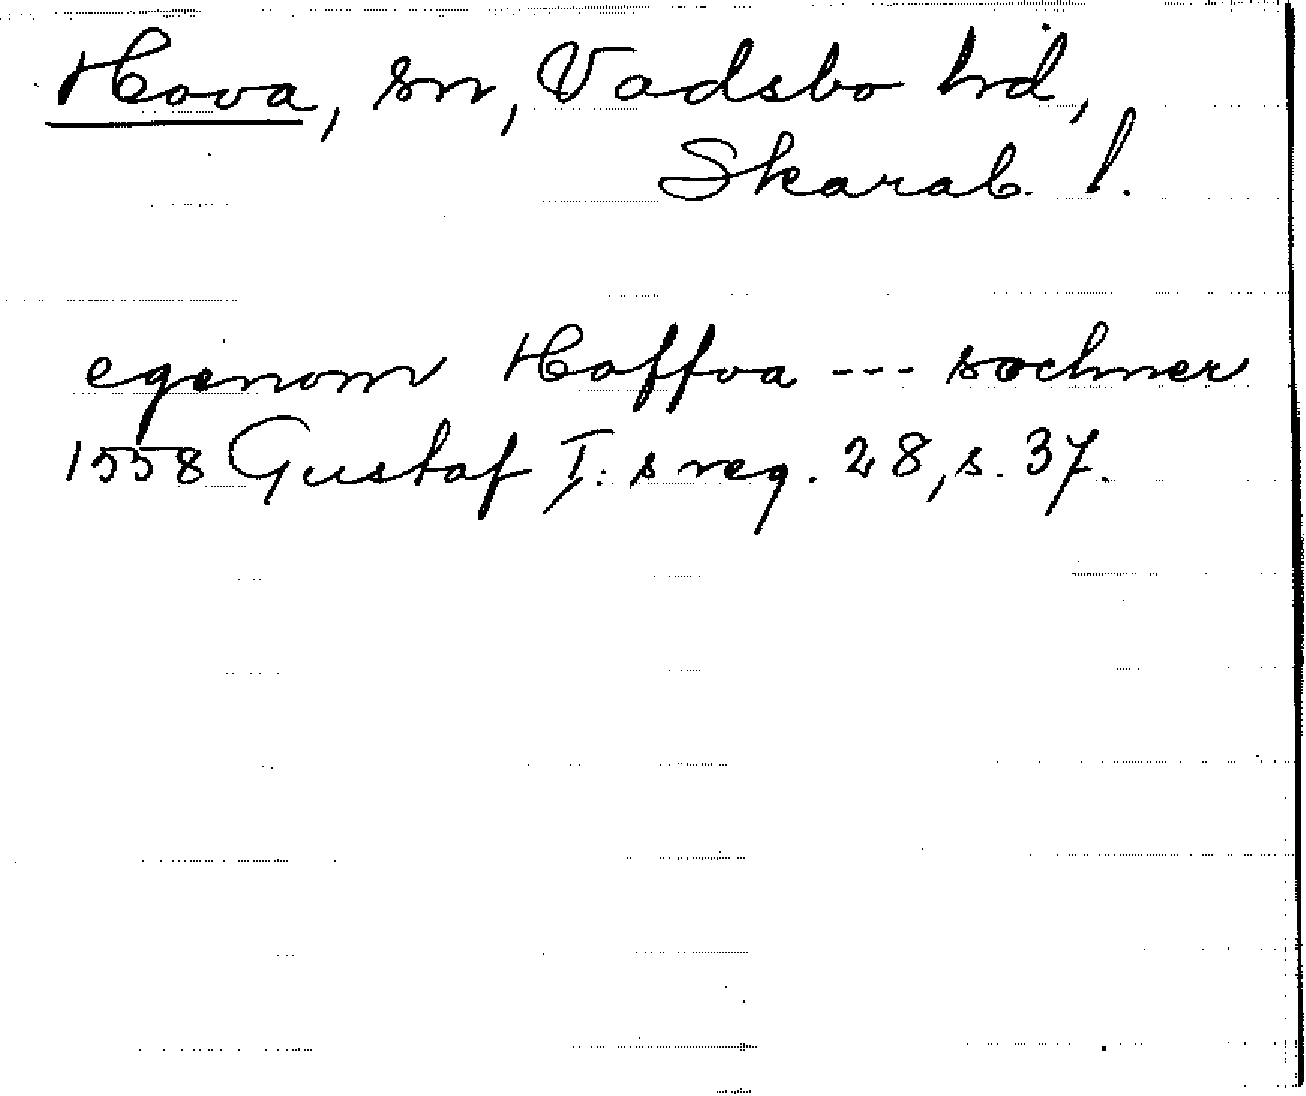 Hova, sn, Vadsbo hd,
Skarab. l.
egenom Hoffva --- sochner
1558 Gustaf I:s reg. 28, s. 37.